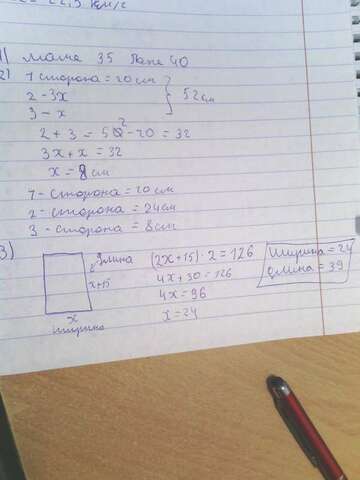 22,5 км/с
1) маме 35 Папе 40
2) 1 сторона = 20 см
2 - 3x
52 см
3 - x
2 + 3 = 52 - 20 = 32
3x + x = 32
x = 8 см
1 - сторона = 20 см
2 - сторона = 24 см
3 - сторона = 8 см
3) длина
x+15
x
ширина
(2x + 15) · 2 = 126
4x + 30 = 126
4x = 96
x = 24
ширина = 24
длина = 39